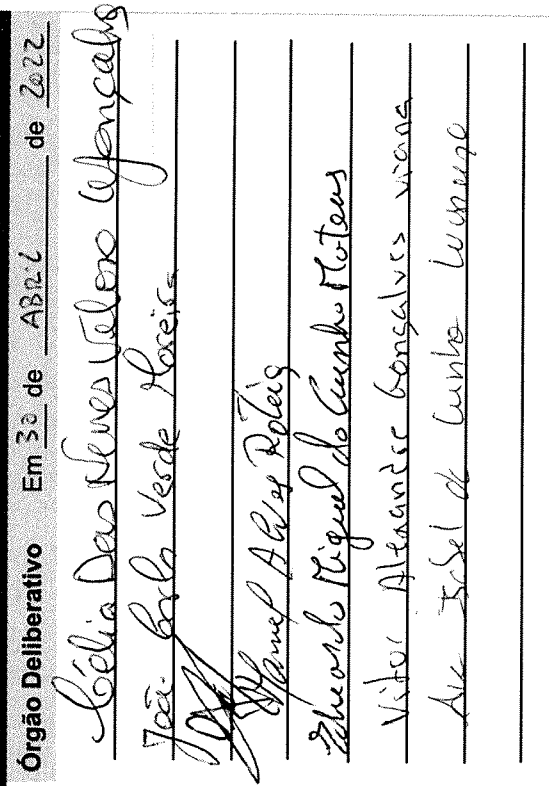 Órgão Deliberativo Em 30 de ABRIL de 2022
Célia Das Neves Veloso Gonçalves
João Carlos Verde Moreira
Manuel Alves
Eduardo Miguel da Cunha Mateus
Vitor Alexandre Gonçalves Viana
Ana Isabel da Cunha